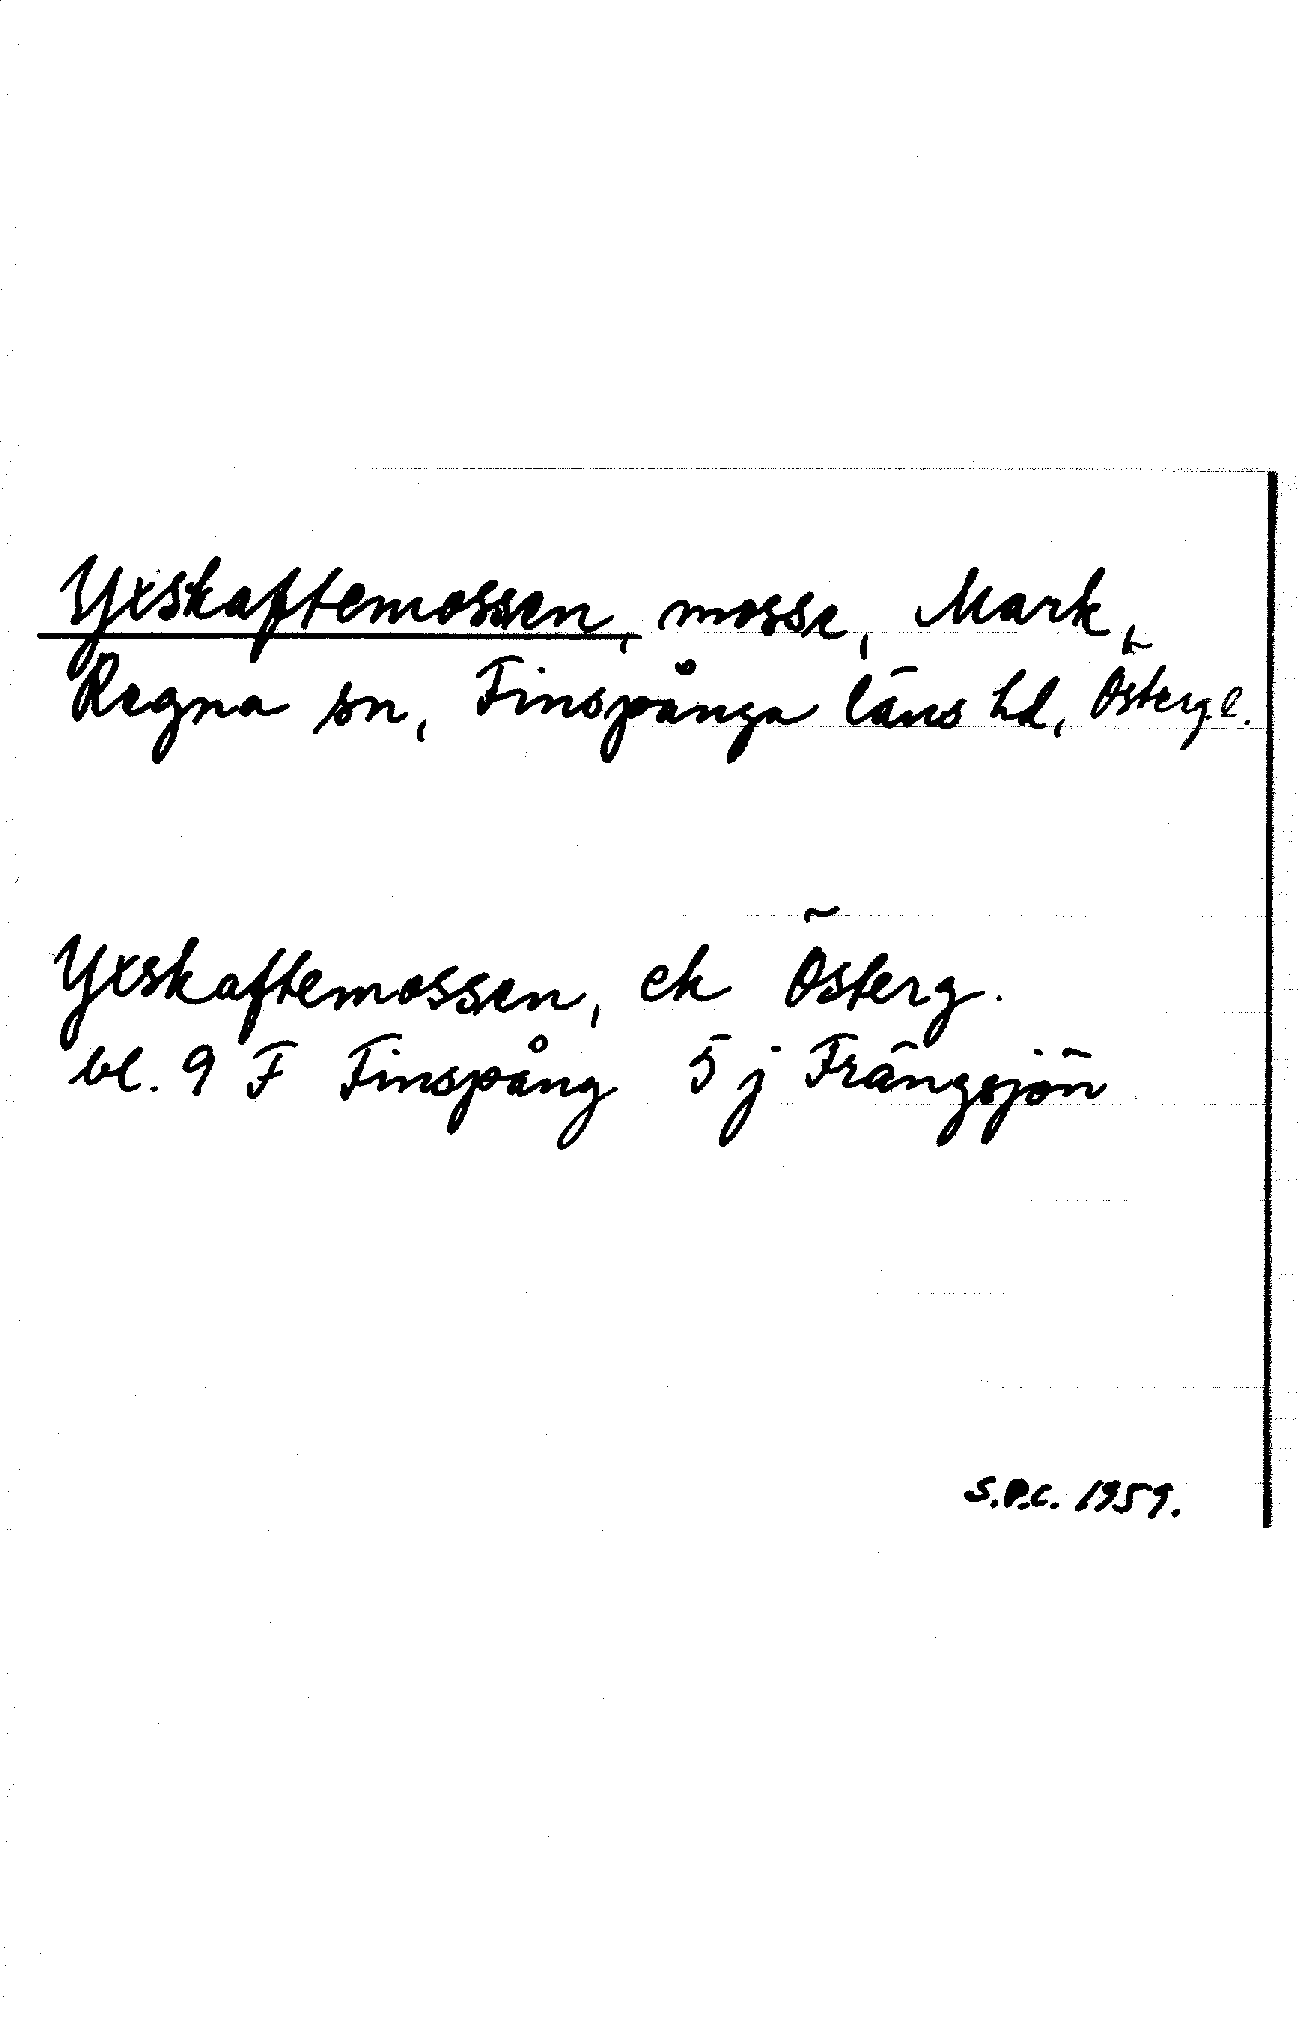 Yxskaftemossen, mosse, Mark,
Regna sn, Finspånga läns hd, Österg.l.
Yxskaftemossen, ek Österg.
bl. 9 F Finspång 5 j Trängsjön
S.P.C. 1959.